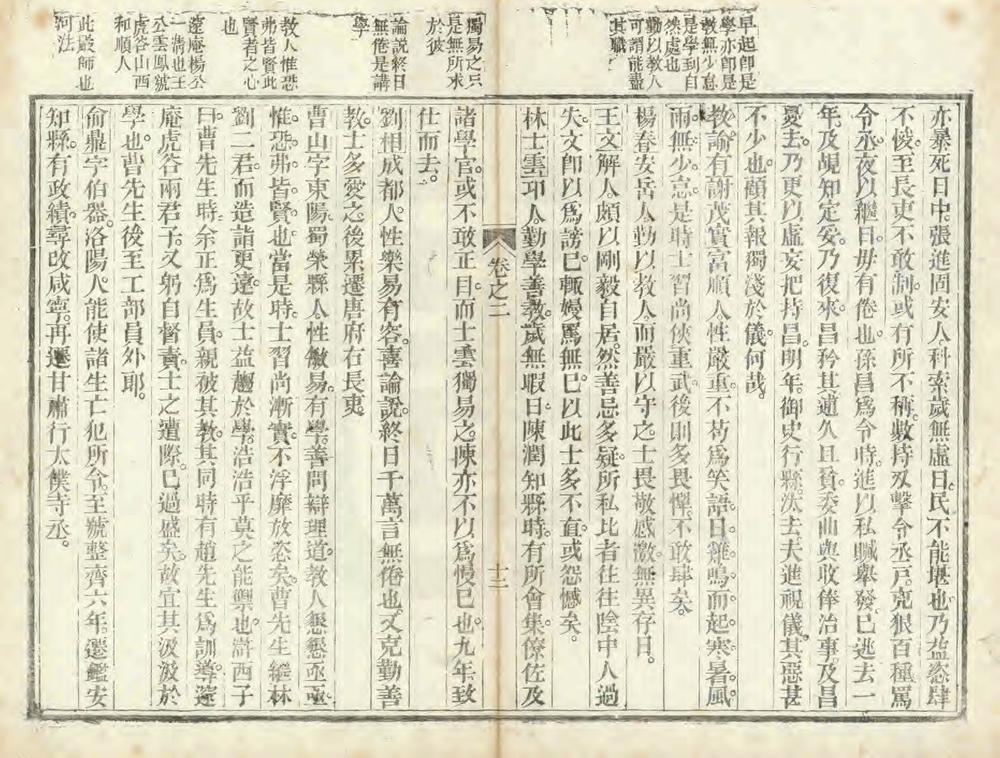 早起卽是
學亦卽是
敎無少怠
是學到自
然處也
勤以敎人
可謂能盡
其職
亦暴死日中。張進固安人科索歲無虛日。民不能堪也乃益恣肆
不悛。至長吏不敢制。或有所不稱。數持刄擊令丞戸。克狠百種罵
令丞。夜以繼日。毋有倦也。孫昌爲令時。進以私贓舉發。已逃去一
年及覘知定妥。乃復來。昌矜其逋久且貧。委曲與收俸治事。及昌
憂去。乃更以虛妄把持昌。明年。御史行縣。汰去。夫進視儀。其惡甚
不少也。顧其報獨淺於儀。何哉。
敎諭有謝茂實富順人性嚴重不苟爲笑語。日雞鳴而起。寒暑風
雨。無少怠。是時士習尚俠重武。後則多畏憚。不敢肆矣。
楊春安岳人勤以敎人而嚴以守之士畏敬感激無異存日。
王文解人頗以剛毅自居。然善忌多疑。所私比者往往陰中人過
失。文卽以爲謗。已輒嫚罵無已。以此士多不直。或怨憾矣。
林士雲邛人。勤學善敎。歲無暇日。陳潤知縣時。有所會集。僚佐及
卷之二
十二
獨易之只
是無所求
於彼
論説終日
無倦是講
學
敎人惟恐
弗皆賢此
賢者之心
也
邃庵楊公
一淸也王
公雲鳳號
虎谷山西
和順人
此嚴師也
可法
諸學官。或不敢正目。而士雲獨易之。陳亦不以爲慢已也。九年致
仕而去。
劉相成都人。性樂易有容。喜論說。終日千萬言無倦也。又克勤善
敎。士多愛之。後累遷唐府右長吏。
曹山字東陽。蜀榮縣人性儆易。有學。善問辯理道。敎人懇懇亟亟。
惟恐弗皆賢也。當是時。士習尚漸實。不浮靡放恣矣。曹先生繼林
劉二君而造詣更遠。故士益趨於學。浩浩乎莫之能禦也。滸西子
曰。曹先生時。余正爲生員。親被其敎。其同時有趙先生爲訓導。邃
庵虎谷兩君子。又躬自督責。士之遭際。已過盛矣。故宜其汲汲於
學也。曹先生後至工部員外郞。
俞鼎字伯器。洛陽人。能使諸生亡犯所令。至號整齊。六年。遷鑑安
知縣。有政績。尋改咸寧。再遷甘肅行太僕寺丞。